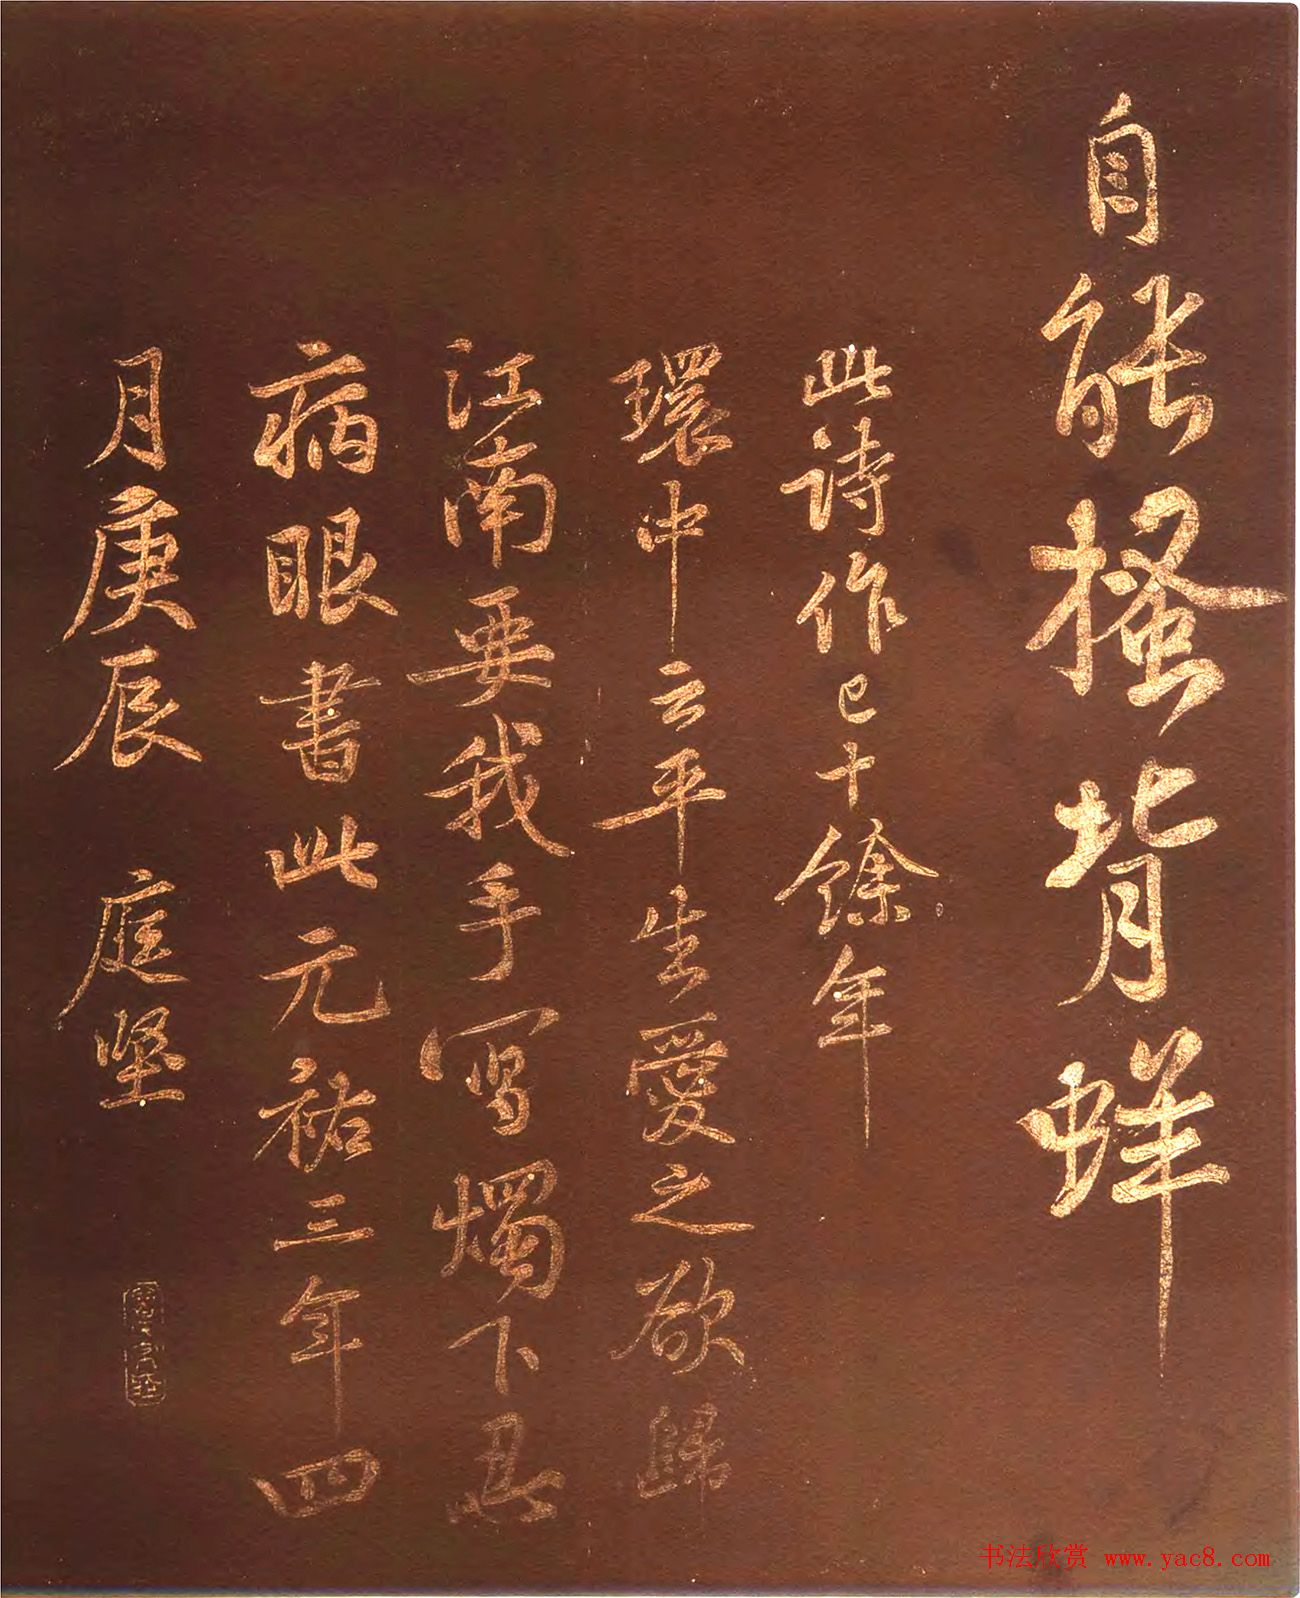 自能搔背蛘
此詩作已十餘年
環中云平生愛之欲歸
江南要我手寫燭下忍
病眼書此元祐三年四
月庚辰 庭堅
书法欣赏 www.yac8.com